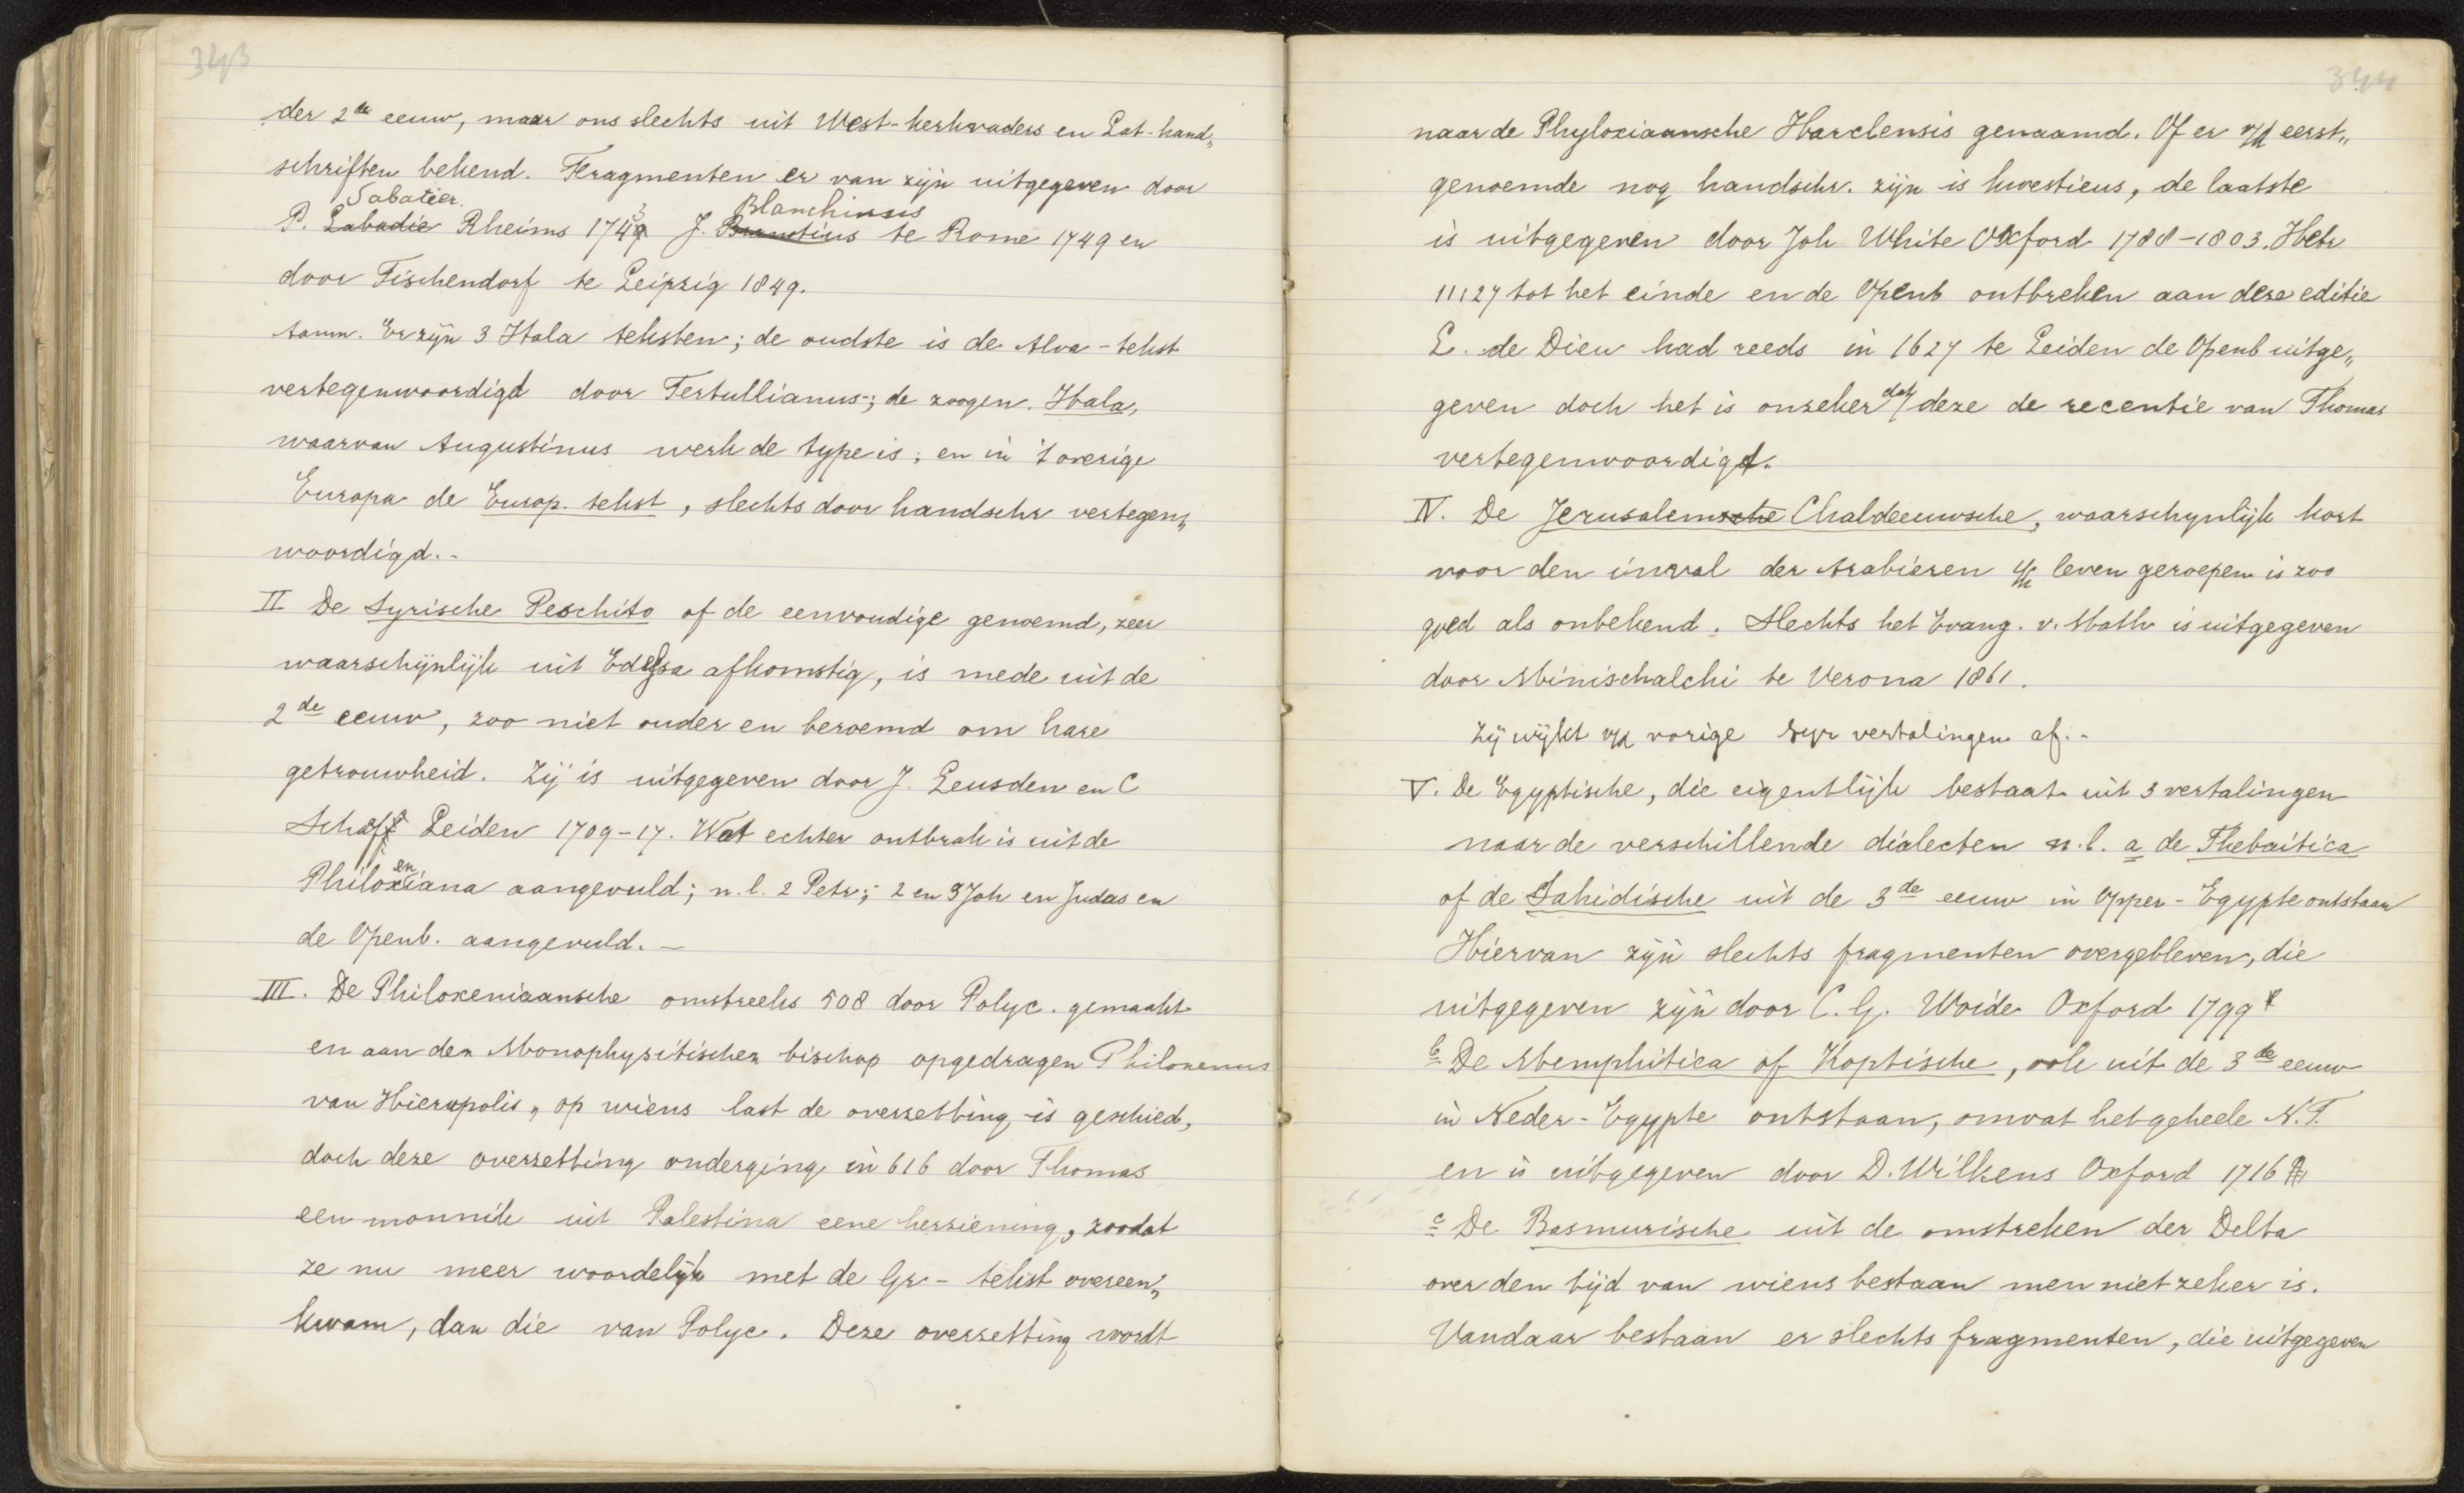 343
der 2de eeuw, maar ons slechts uit West-kerkvaders en Lat-hand„
schriften bekend. Fragmenten er van zijn uitgegeven door
Sabatier. Blanchinus
P. Labadie Rheims 1743 J. te Rome 1749 en
door Tischendorf te Leipzig 1849.
Aanm. Er zijn 3 Itala teksten; de oudste is de Afra-tekst
vertegenwoordigd door Tertullianus; de zoogen. Itala,
waarvan Augustinus werk de type is; en in 't overige
Europa de Europ. tekst, slechts door handschr vertegen„
woordigd.-
II De Syrische Peschito of de eenvoudige genoemd, zeer
waarschijnlijk uit Edessa afkomstig, is mede uit de
2de eeuw, zoo niet ouder en beroemd om hare
getrouwheid. Zij is uitgegeven door J. Leusden en C
Schaff Leiden 1709-17. Wat echter ontbrak is uit de
en
Philoxiana aangevuld; n.l. 2 Petr; 2 en 3 Joh en Judas en
de Openb. aangevuld. —
III. De Philoxeniaansche omstreeks 508 door Polyc. gemaakt
en aan den Monophysitischen bischop opgedragen Philoxenus
van Hierapolis, op wiens last de overzetting is geschied,
doch deze overzetting onderging in 616 door Thomas
een monnik uit Palestina eene herziening, zoodat
ze nu meer woordelijk met de Gr- tekst overeen„
kwam, dan die van Polyc. Deze overzetting wordt
344
naar de Phyloxiaansche Harclensis genaamd. Of er v/d eerst„
genoemde nog handschr. zijn is kwestieus, de laatste
is uitgegeven door Joh White Oxford 1788-1803. Hebr
11:27 tot het einde en de Openb ontbreken aan deze editie
L. de Dieu had reeds in 1627 te Leiden de Openb uitge„
geven doch het is onzeker dat deze de recentie van Thomas
vertegenwoordigt.
IV. De Jerusalemsche Chaldeeuwsche, waarschynlijk kort
voor den inval der Arabieren i/h leven geroepen is zoo
goed als onbekend. Slechts het Evang. v. Math is uitgegeven
door Minischalchi te Verona 1861.
Zij wijkt v/d vorige Syr vertalingen af.-
V. De Egyptische, die eigentlijk bestaat uit 3 vertalingen
naar de verschillende dialecten n.l. a de Thebaitica
of de Sahidische uit de 3de eeuw in Opper-Egypte ontstaan
Hiervan zijn slechts fragmenten overgebleven, die
uitgegeven zijn door C. G. Woide Oxford 1799
b De Memphitica of Koptische, ook uit de 3de eeuw
in Neder-Egypte ontstaan, omvat het geheele N.T.
en is uitgegeven door D. Wilkens Oxford 1716
c De Basmurische uit de omstreken der Delta
over den tijd van wiens bestaan men niet zeker is.
Vandaar bestaan er slechts fragmenten, die uitgegeven